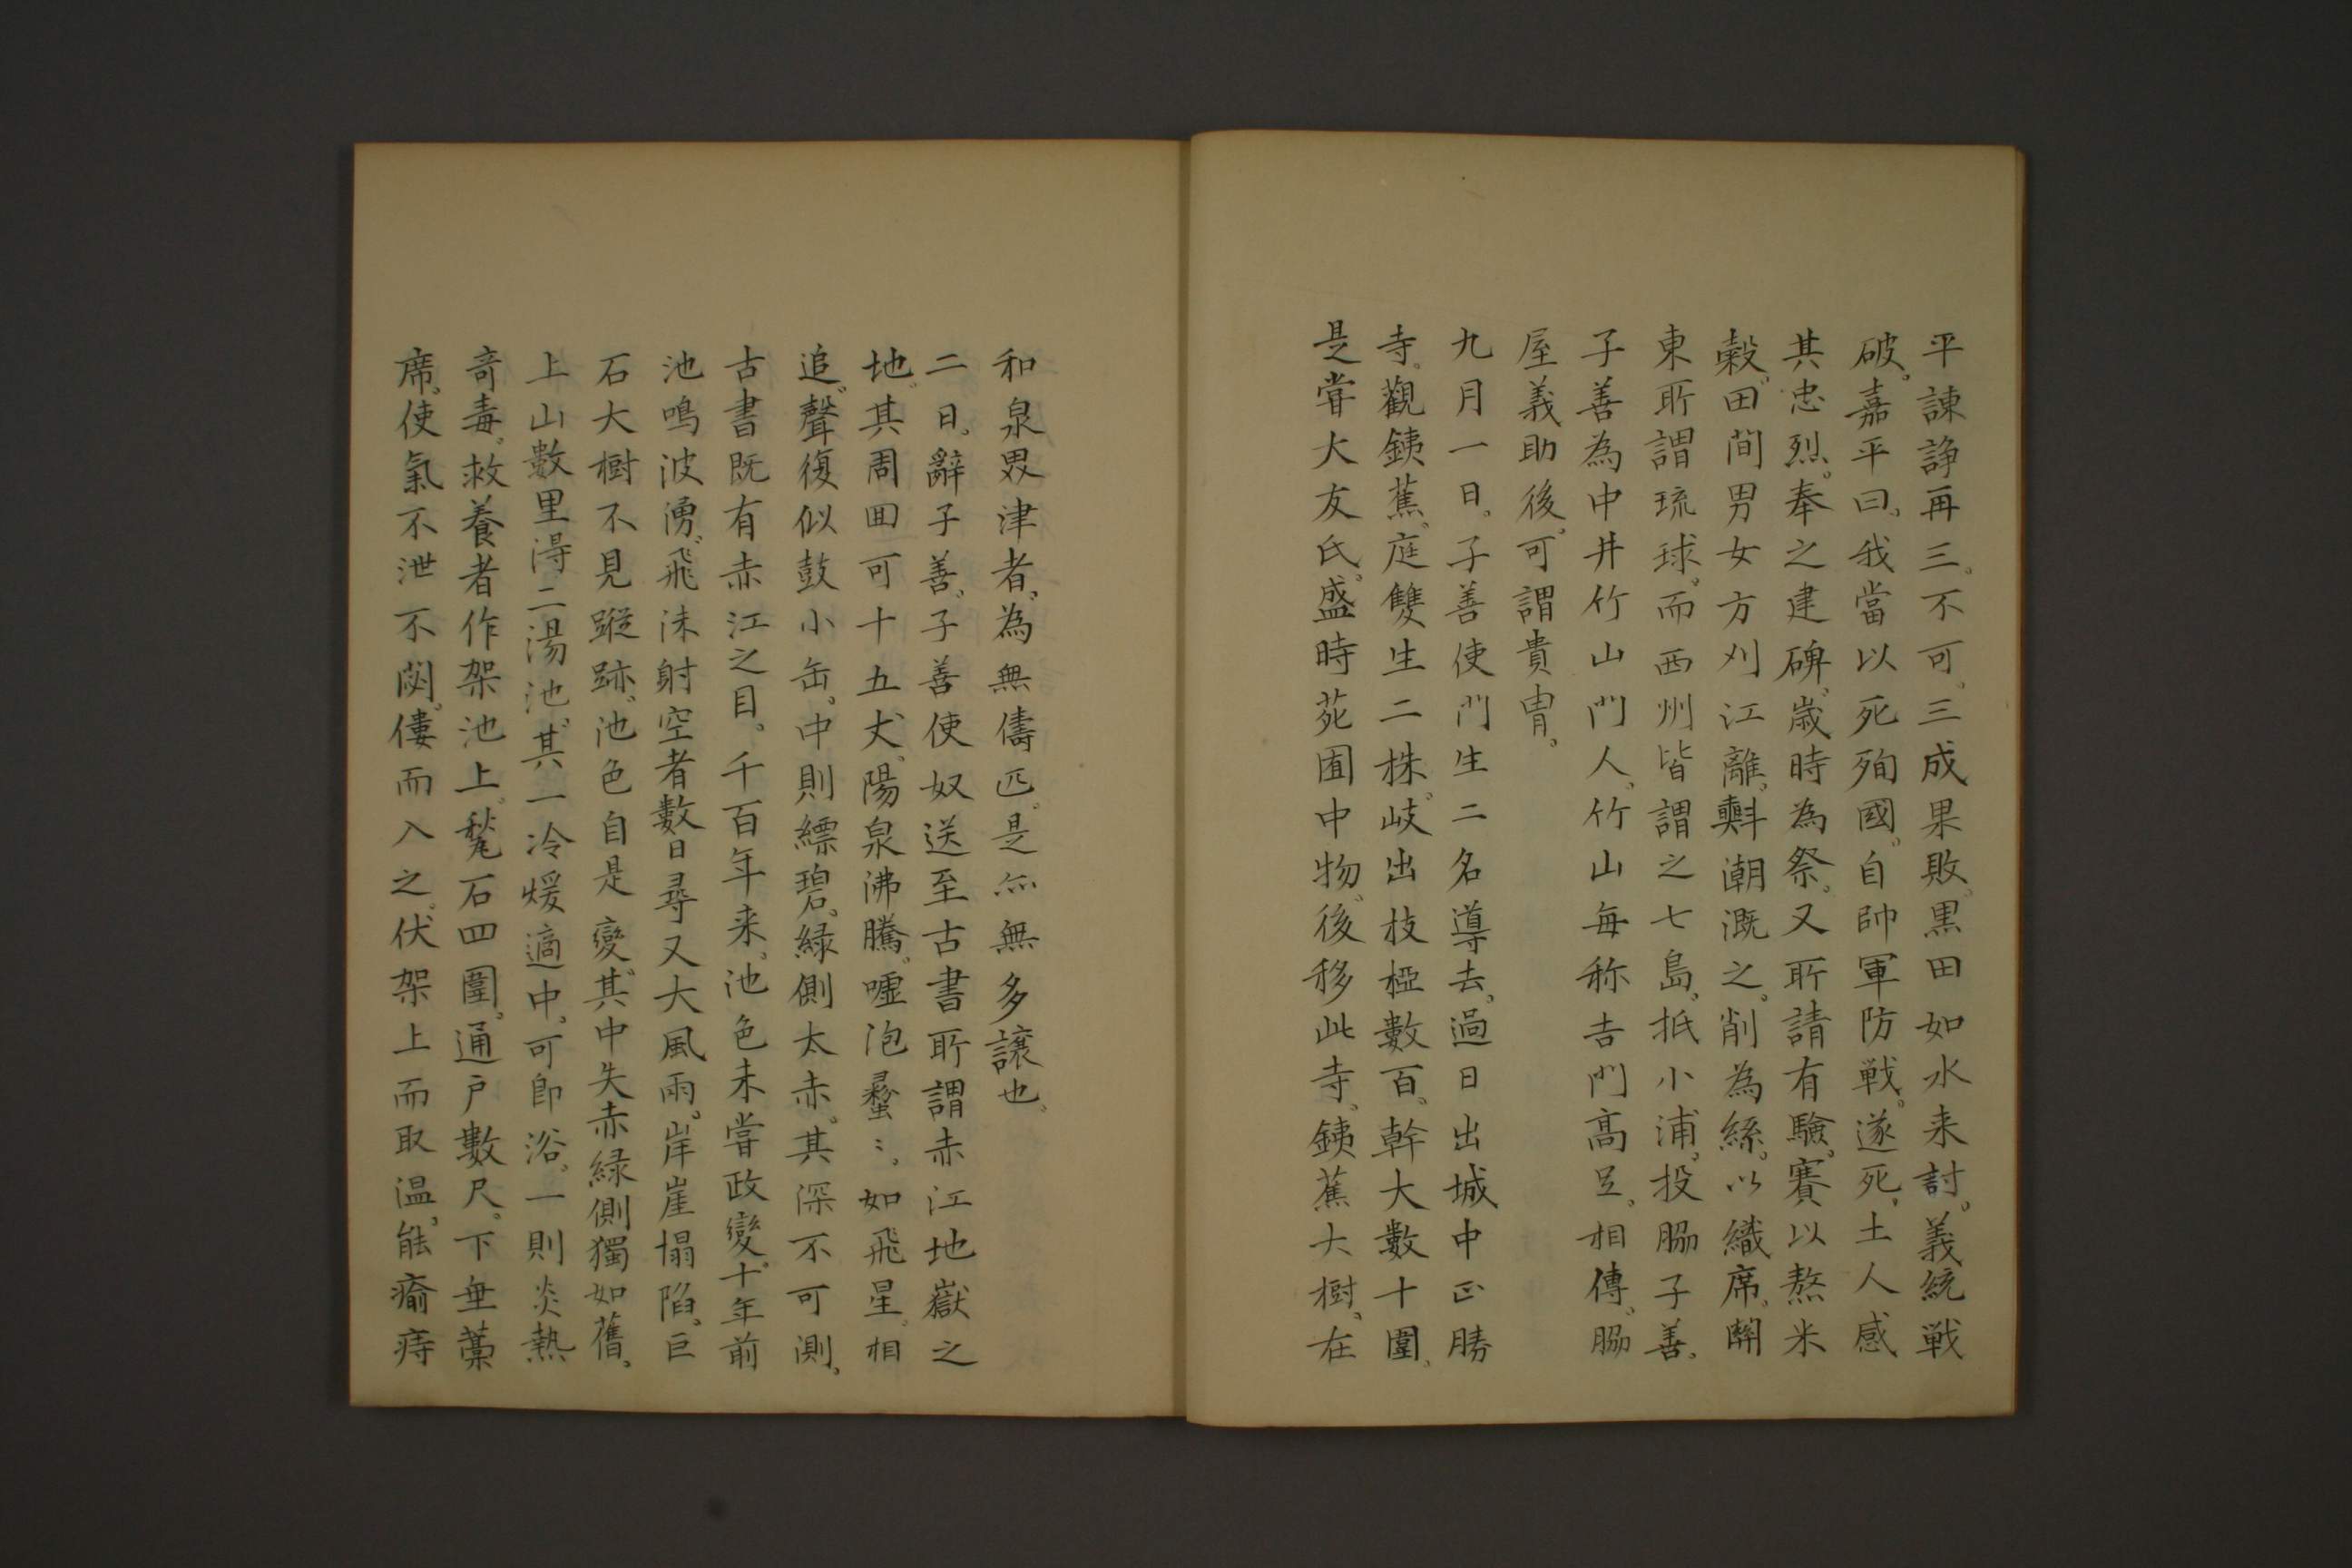 平諫諍再三。不可。三成果敗。黒田如水来討。義統戦
破。嘉平曰。我當以死殉國。自帥軍防戦。遂死。土人感
其忠烈。奉之建碑。歳時為祭。又所請有驗。賽以熬米
糓。田間男女方刈江離。㪺潮漑之。削為絲。以織席。關
東所謂琉球。而西州皆謂之七島。抵小浦。投脇子善。
子善為中井竹山門人。竹山毎称吉門髙足。相傳。脇
屋義助後。可謂貴冑。
九月一日。子善使門生二名導去。過日出城中正勝
寺。觀銕蕉。庭雙生二株。岐出枝椏數百。幹大數十圍。
是甞大友氏。盛時苑囿中物。後移此寺。銕蕉大樹。在
和泉界津者。為無儔匹。是亦無多譲也。
二日。辭子善。子善使奴送至古書所謂赤江地嶽之
地。其周囬可十五丈。陽泉沸騰。嘘泡蠢〻。如飛星。相
追。聲復似鼓小缶。中則縹碧。緑側太赤。其深不可測。
古書既有赤江之目。千百年来。池色未甞政變。十年前
池鳴波湧。飛沫射空者數日尋又大風雨。岸崖塌陷。巨
石大樹不見蹤跡。池色自是變。其中失赤緑側獨如舊。
上山數里得二湯池。其一冷煖適中。可即浴。一則炎熱
竒毒。救養者作架池上。甃石四圍。通戸數尺。下垂藁
席。使氣不泄不閟。僂而入之。伏架上而取温。能瘉痔